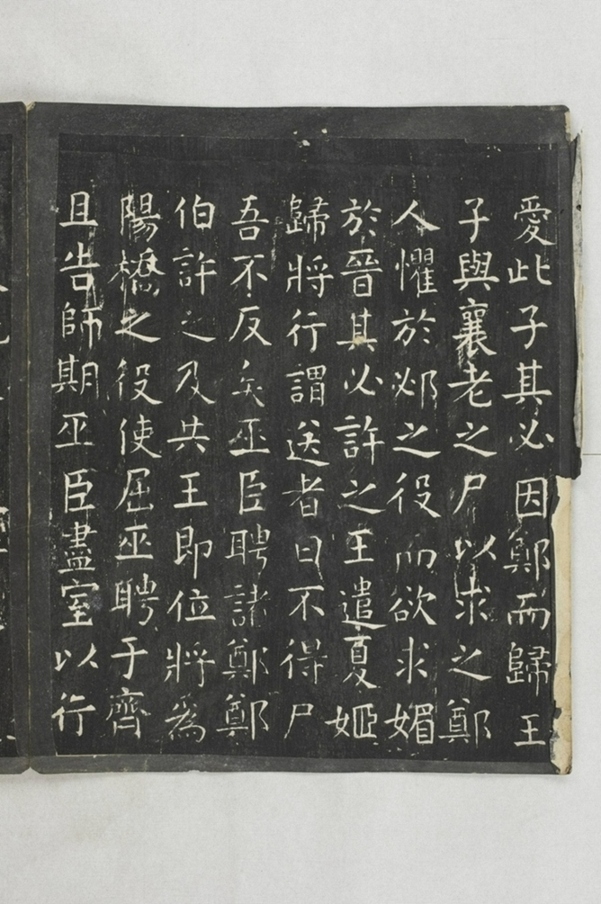 愛此子其必因鄭而歸王
子與襄老之尸以求之鄭
人懼於邲之役而欲求媚
於晉其必許之王遣夏姬
歸將行謂送者曰不得尸
吾不反矣巫臣聘諸鄭鄭
伯許之及共王即位將為
陽橋之役使屈巫聘于齊
且告師期巫臣盡室以行